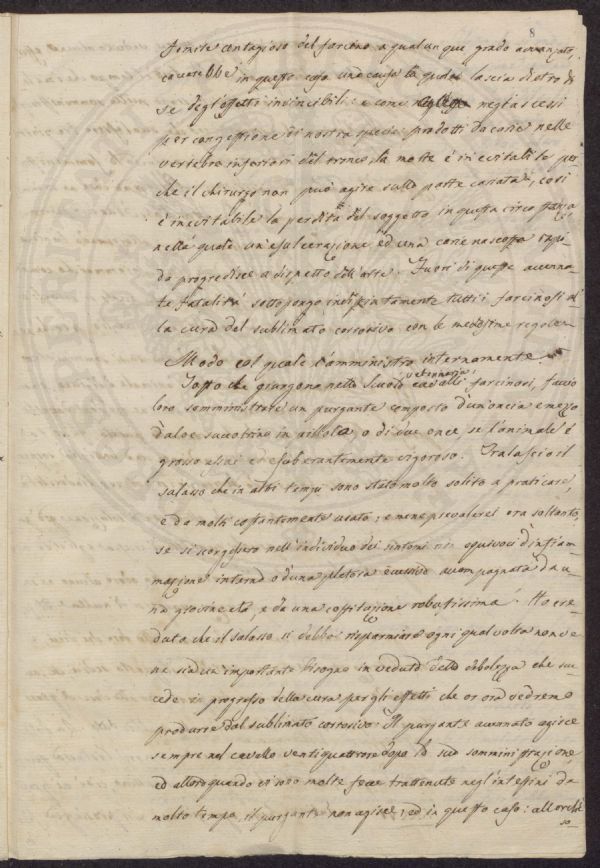 8
fomite contagioso del farcino a qualunque grado avanzato,
in questo caso una causa la quale lascia dietro di
se degl'effetti invincibili: e come negl'ascessi
per congestione di nostra specie prodotti da carie nelle
vertebre inferiori del tronco, la morte è inevitabile per
che il chirurgo non può agire sulla parte cariata, così
è inevitabile la perdita del soggetto in questa circostanza,
nella quale un'esulcerazione ed una carie nascosta rapi
da progredisce a dispetto dell'arte. Fuori di queste accenna
te fatalità sottopongo indistintamente tutti i farcinosi al
la cura del sublimato corrosivo con le medesime regole.
Modo col quale l'amministro internamente.
Tosto che giungono nella Scuola veterinaria cavalli farcinosi, faccio
loro somministrare un purgante composto d'un'oncia e mezzo
d'aloe succotrino in pillole, o di due once, se l'animale è
grosso assai ed esuberantemente vigoroso. Tralascio il
salasso che in altri tempi sono stato molto solito a praticare,
e da molti costantemente usato; e me ne prevalerei ora soltanto,
se si scorgessero nell'individuo dei sintomi non equivoci d'infiam
mazione interna o d'una pletora eccessiva accompagnata da u
na giovine età, e da una costituzione robustissima. Ho cre
duto che il salasso si debba risparmiare ogni qual volta non ve
ne sia un importante bisogno in veduta della debolezza che suc
cede in progresso della cura per gli effetti che or ora vedremo
prodursi dal sublimato corrosivo. Il purgante accennato agisce
sempre nel cavallo ventiquattrore dopo la sua somministrazione,
ed allorquando vi sono molte fecce trattenute negl'intestini da
molto tempo, il purgante non agisce; ed in questo caso:
so